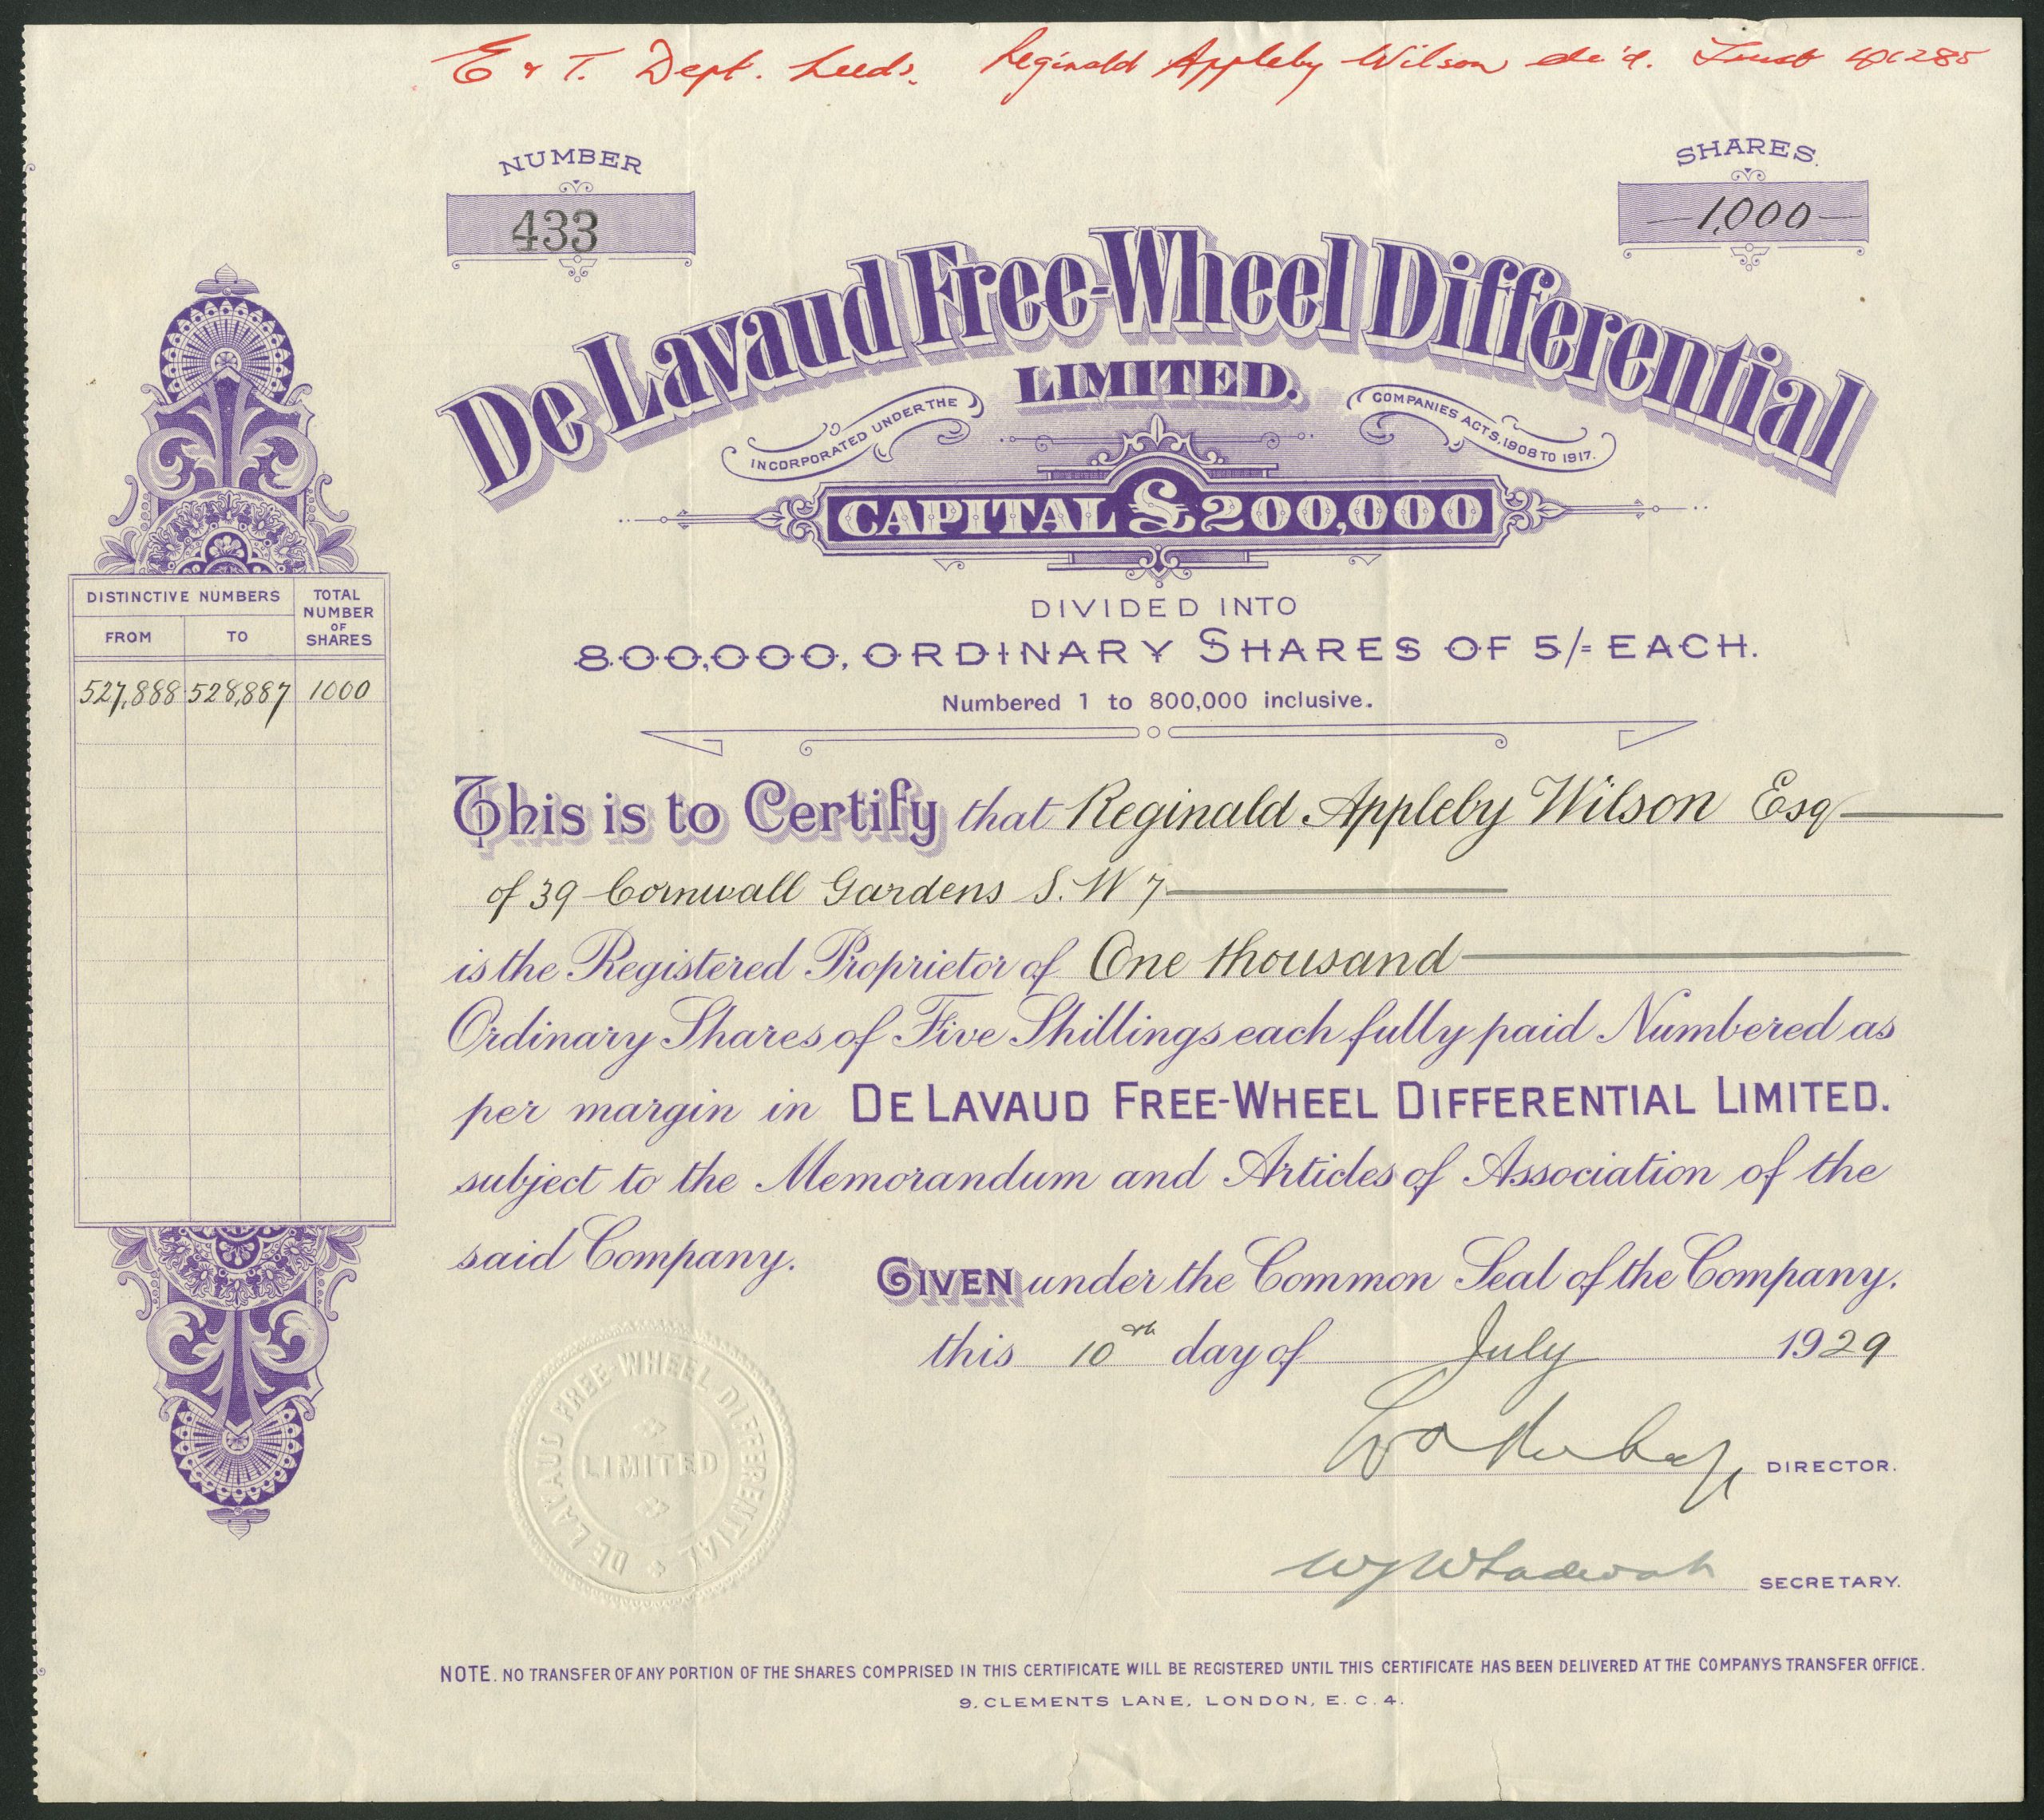 E & T. Dept. Leeds. Reginald Appleby Wilson dec'd. Trust
NUMBER
433
SHARES.
1,000
De Lavaud Free-Wheel Differential
LIMITED.
INCORPORATED UNDER THE COMPANIES ACTS, 1908 TO 1917.
CAPITAL £200,000
DIVIDED INTO
800,000, ORDINARY SHARES OF 5/= EACH.
Numbered 1 to 800,000 inclusive.
DISTINCTIVE NUMBERS
TOTAL NUMBER OF SHARES
FROM TO
527,888 528,887 1000
This is to Certify that Reginald Appleby Wilson Esq
of 39 Cornwall Gardens S.W 7
is the Registered Proprietor of One thousand
Ordinary Shares of Five Shillings each fully paid Numbered as
per margin in DE LAVAUD FREE-WHEEL DIFFERENTIAL LIMITED.
subject to the Memorandum and Articles of Association of the
said Company.
GIVEN under the Common Seal of the Company.
this 10th day of July 1929
DIRECTOR.
SECRETARY.
DE LAVAUD FREE-WHEEL DIFFERENTIAL
LIMITED
NOTE. NO TRANSFER OF ANY PORTION OF THE SHARES COMPRISED IN THIS CERTIFICATE WILL BE REGISTERED UNTIL THIS CERTIFICATE HAS BEEN DELIVERED AT THE COMPANYS TRANSFER OFFICE.
9, CLEMENTS LANE, LONDON, E.C.4.